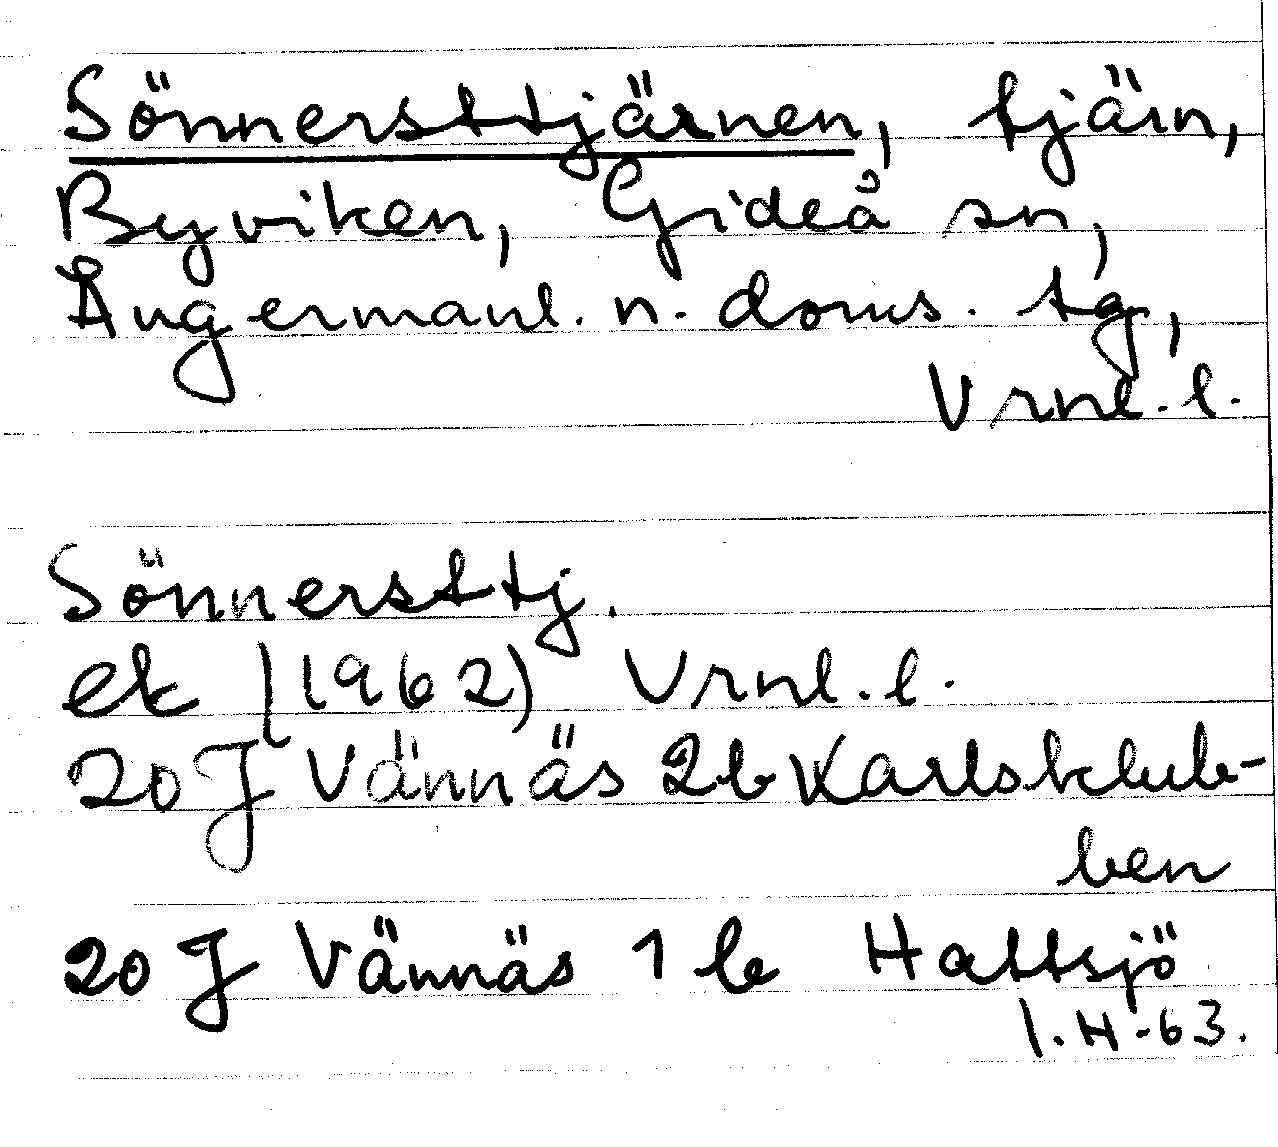 Sönnersttjärnen, tjärn,
Byviken, Gideå sn,
Ångermanl. n. doms. tg,
Vrnl. l.
Sönnersttj.
ek (1962) Vrnl. l.
20 J Vännäs 2b Karlsklub-
ben
20 J Vännäs 1b Hattsjö
I. H-63.